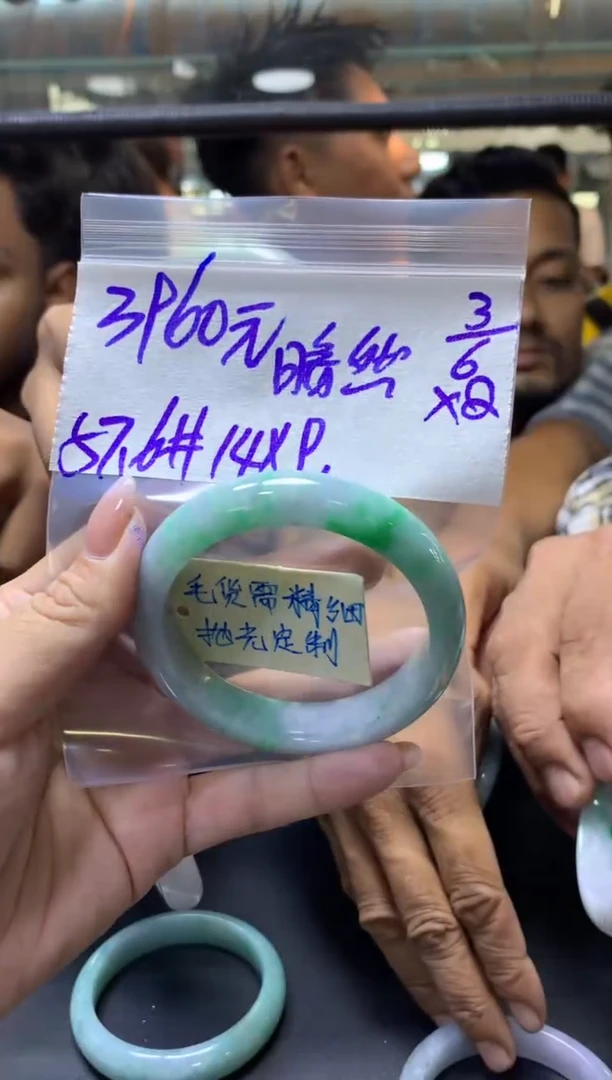 3960元
暗丝
3
6
XQ
57.6# 14X9.
毛货需精细
抛光定制